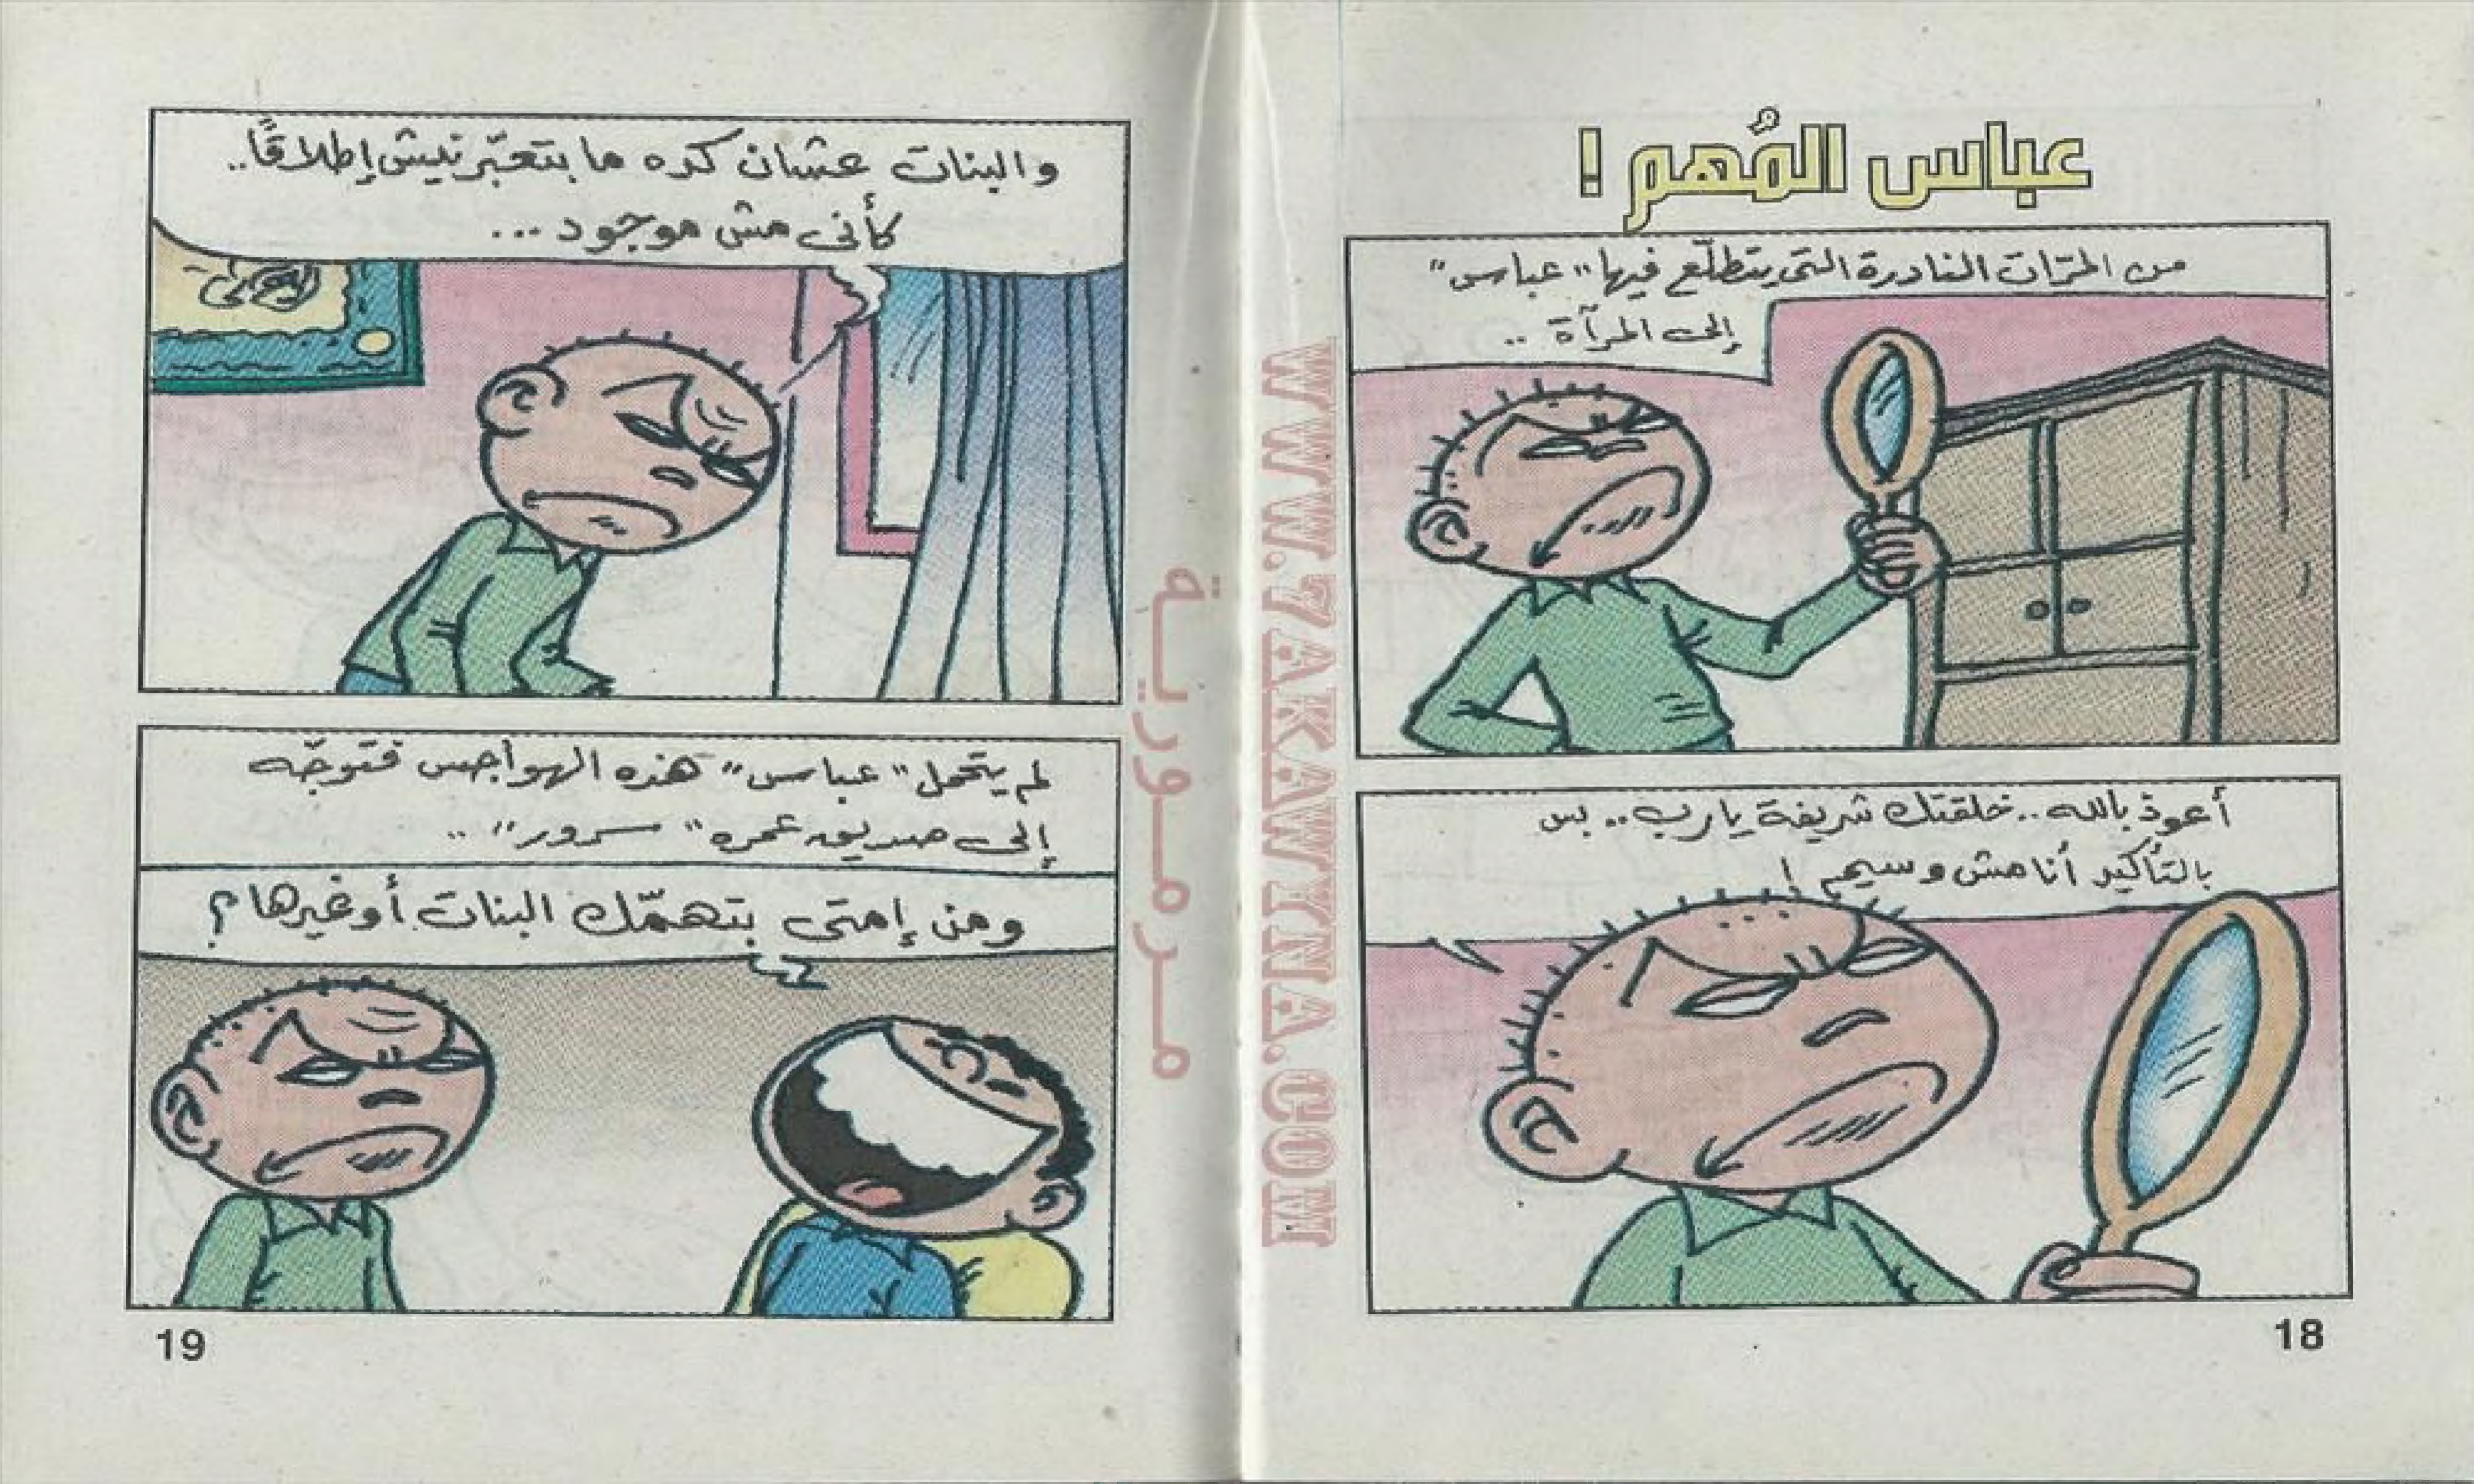 عباس المُهم !
من المرّات النادرة التى يتطلّع فيها "عباس"
إلى المرآة ..
أعوذ بالله .. خلقتك شريفة يارب .. بس
بالتأكيد أنا مش وسيم !
18
والبنات عشان كده ما بتعبّرنيش إطلاقًا ..
كأنى مش موجود ...
لم يتحمل "عباس" هذه الهواجس فتوجّه
إلى صديق عمره "سرور" ..
ومن إمتى بتهمّك البنات أو غيرها ؟
19
WWW.7AKAWYNA.COM
مرمورية